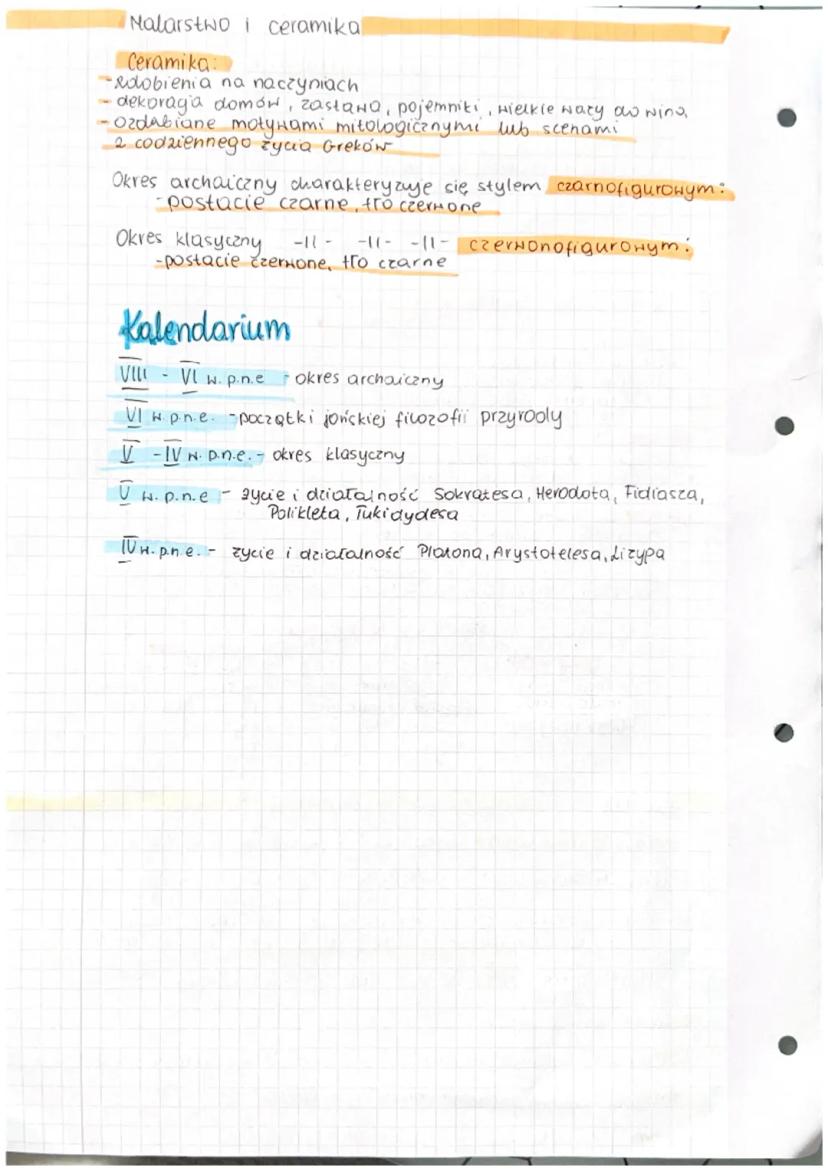 Malarstwo i ceramika
Ceramika:
- zdobienia na naczyniach
- dekoracja domów, zastawa, pojemniki, wielkie wazy do wina
- ozdabiane motywami mitologicznymi lub scenami
z codziennego życia Greków
Okres archaiczny charakteryzuje się stylem czarnofigurowym:
- postacie czarne, tło czerwone
Okres klasyczny -||- -||- -||- czerwonofigurowym:
- postacie czerwone, tło czarne
Kalendarium
VIII - VI w. p.n.e - okres archaiczny
VI w. p.n.e. - początki jońskiej filozofii przyrody
V - IV w. p.n.e. - okres klasyczny
V w. p.n.e - życie i działalność Sokratesa, Herodota, Fidiasza,
Polikleta, Tukidydesa
IV w. p.n.e. - życie i działalność Platona, Arystotelesa, Lizypa